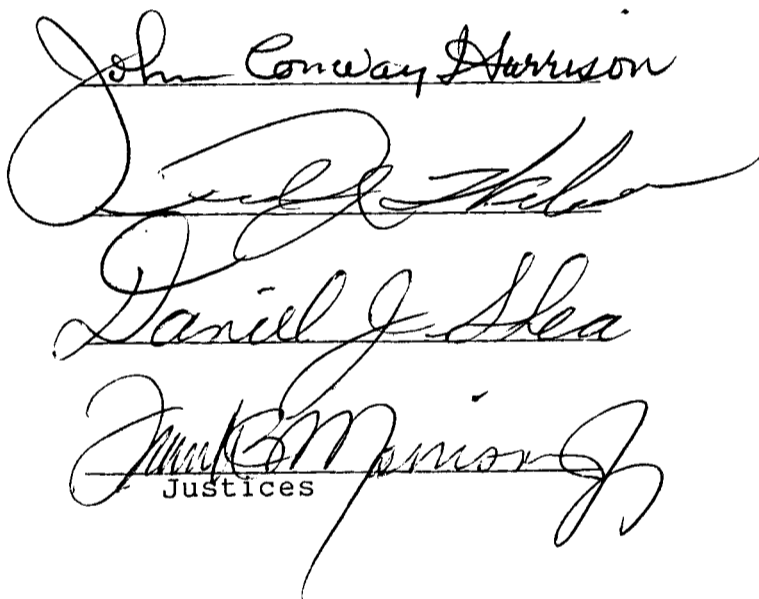 John Conway Harrison
Daniel J. Shea
Frank B. Morrison Jr
Justices